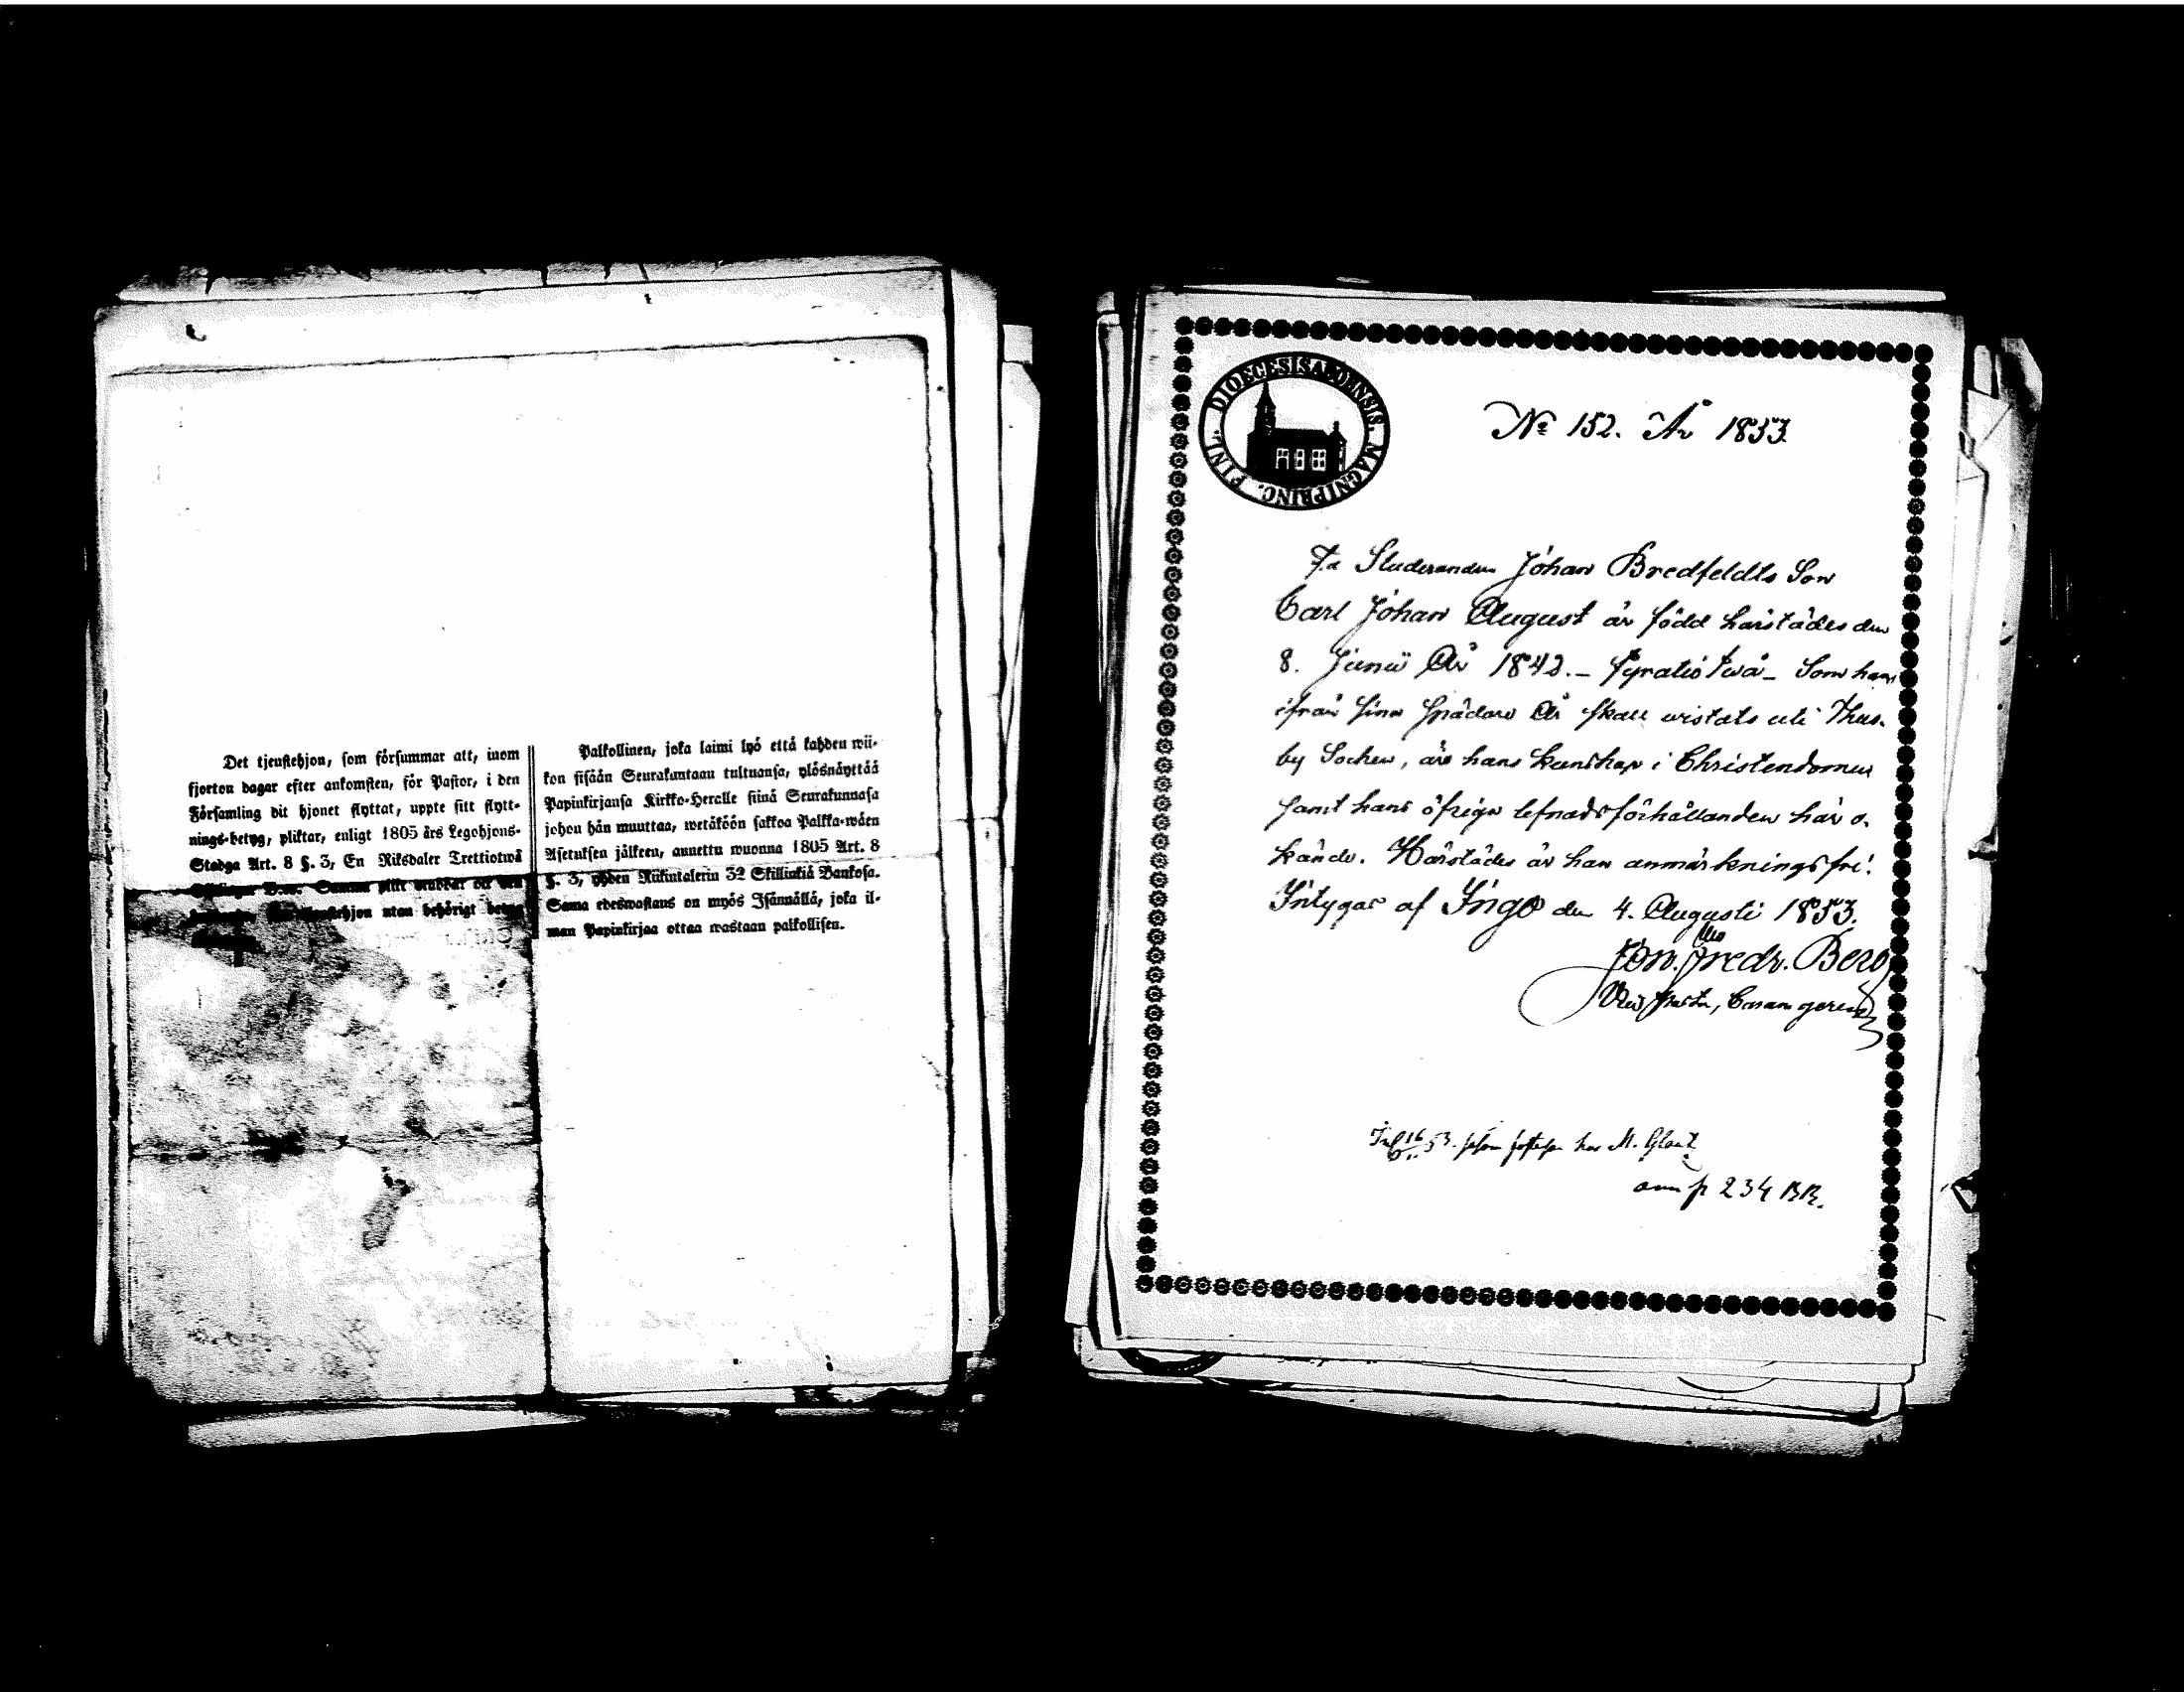 Det tjenstehjon, som försummar att, inom
fjorton dagar efter ankomsten, för Pastor, i den
Församling dit hjonet flyttat, uppte sitt flytt-
nings-betyg, pliktar, enligt 1805 års Legohjons-
Stadga Art. 8 §. 3, En Riksdaler Trettiotwå
B:co. Samma plikt
utan behörigt
Palkollinen, joka laimi lyö että kahden wii-
kon sisään Seurakuntaan tultuansa, ylösnäyttää
Papinkirjansa Kirkko-Heralle siinä Seurakunnasa
johon hän muuttaa, wetäköön sakkoa Palkka-wäen
Asetuksen jälkeen, annettu wuonna 1805 Art. 8
§. 3, yhden Riikintalerin 32 Skillinkiä Bankosa.
Sama edeswastaus on myös Isännällä, joka il-
man Papinkirjaa ottaa wastaan palkollisen.
DIOECESIS ABOENSIS. MAGNI PRINC. FINL.
No 152. År 1853.
Studeranden Johan Bredfeldts Son
Carl Johan August är född härstädes den
8. Junii År 1842. – fyratio twå – Som han
ifrån sina spädare År skall wistats uti Thus-
by Sochen, äro hans kunskap i Christendomen
samt hans öfriga lefnadsförhållanden här o-
kände. Härstädes är han anmärkningsfri!
Intygar af Ingo den 4. Augusti 1853.
Fredr. Berg
Vice Pastor,
16 53. hos M.
p 234